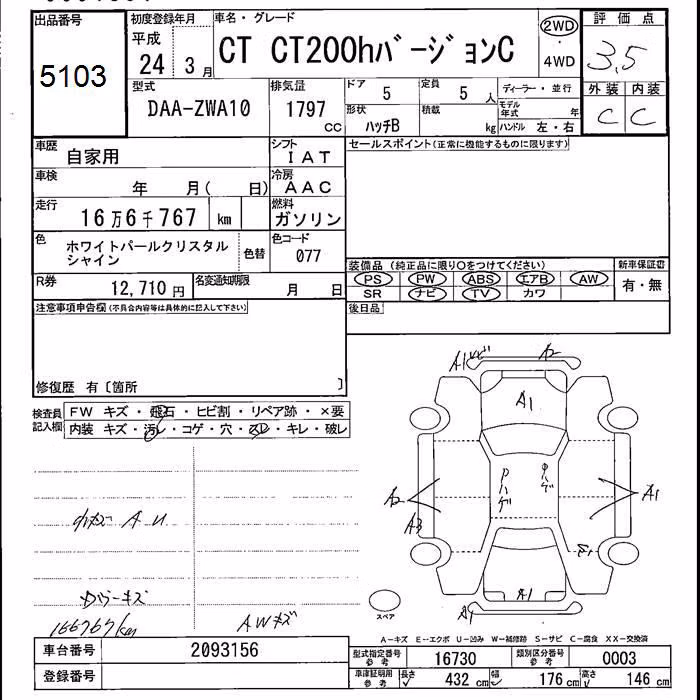 出品番号 初度登録年月 車名・グレード 評価点
5103
平成
24 3月
CT CT200hバージョンC
2WD
4WD
3.5
型式 排気量 ドア 定員 ディーラー・並行 外装 内装
DAA-ZWA10 1797 cc 5 5人 モデル年式 年 C C
形状 積載
ハッチB kg ハンドル 左・右
車歴 自家用 シフト IAT セールスポイント(正常に機能するものに限ります)
車検 年 月( 日) 冷房 AAC
走行 16万6千767 km 燃料 ガソリン
色 ホワイトパールクリスタルシャイン 色替 色コード 077
装備品(純正品に限り○をつけてください) 新車保証書
PS PW ABS エアB AW 有・無
SR ナビ TV カワ
R券 12,710円 名変通知期限 月 日
後日品
注意事項申告欄(不具合内容等は具体的に記入して下さい)
修復歴 有〔箇所 〕
検査員記入欄 FW キズ・飛石・ヒビ割・リペア跡・×要
内装 キズ・汚レ・コゲ・穴・スレ・キレ・破レ
A1 A2
A1
A2 A3 A1
A1
スペア
166767km AWキズ
A-キズ E-エクボ U-凹み W-補修跡 S-サビ C-腐食 XX-交換済
車台番号 2093156 型式指定番号 参考 16730 類別区分番号 参考 0003
登録番号 車庫証明用 参考 長さ 432 cm 幅 176 cm 高さ 146 cm